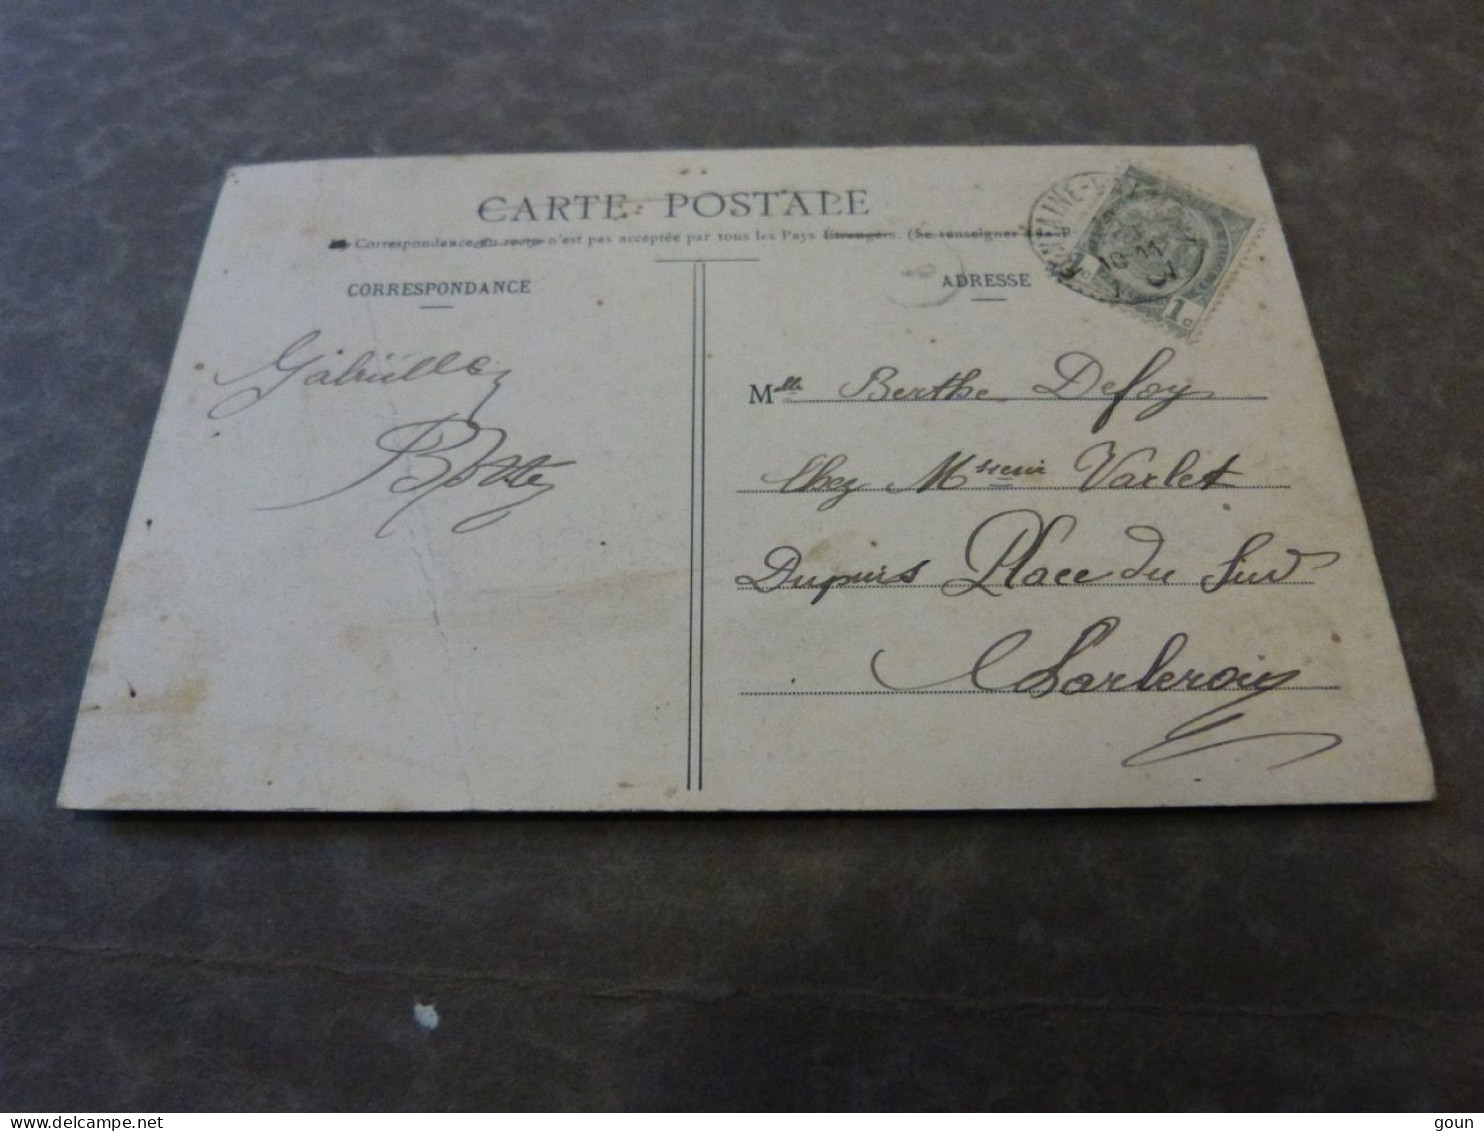 CARTE POSTALE
La Correspondance au recto n'est pas acceptée par tous les Pays Étrangers. (Se renseigner à la P
CORRESPONDANCE
Gabrielle
Botte
ADRESSE
1c
Mlle Berthe Defoy
Chez Msieur Varlet
Dupuis Place du Sud
Charleroy
delcampe.net
goun